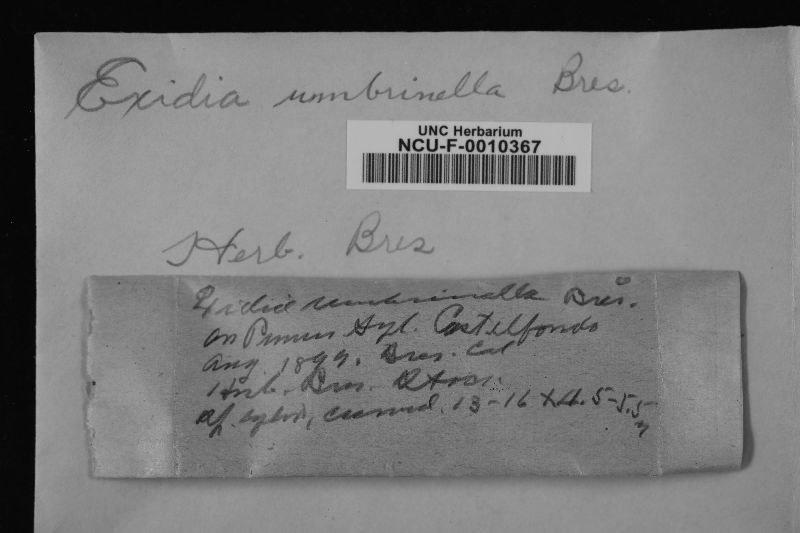 Exidia umbrinella Bres.
UNC Herbarium
NCU-F-0010367
Herb. Bres
Exidia umbrinella Bres.
on Pinus Syl. Castelfondo
Aug 1899. Bres. Col
Herb. Bres. Stos.
Sp. cylin, curved. 13-16 x 4.5-5.5